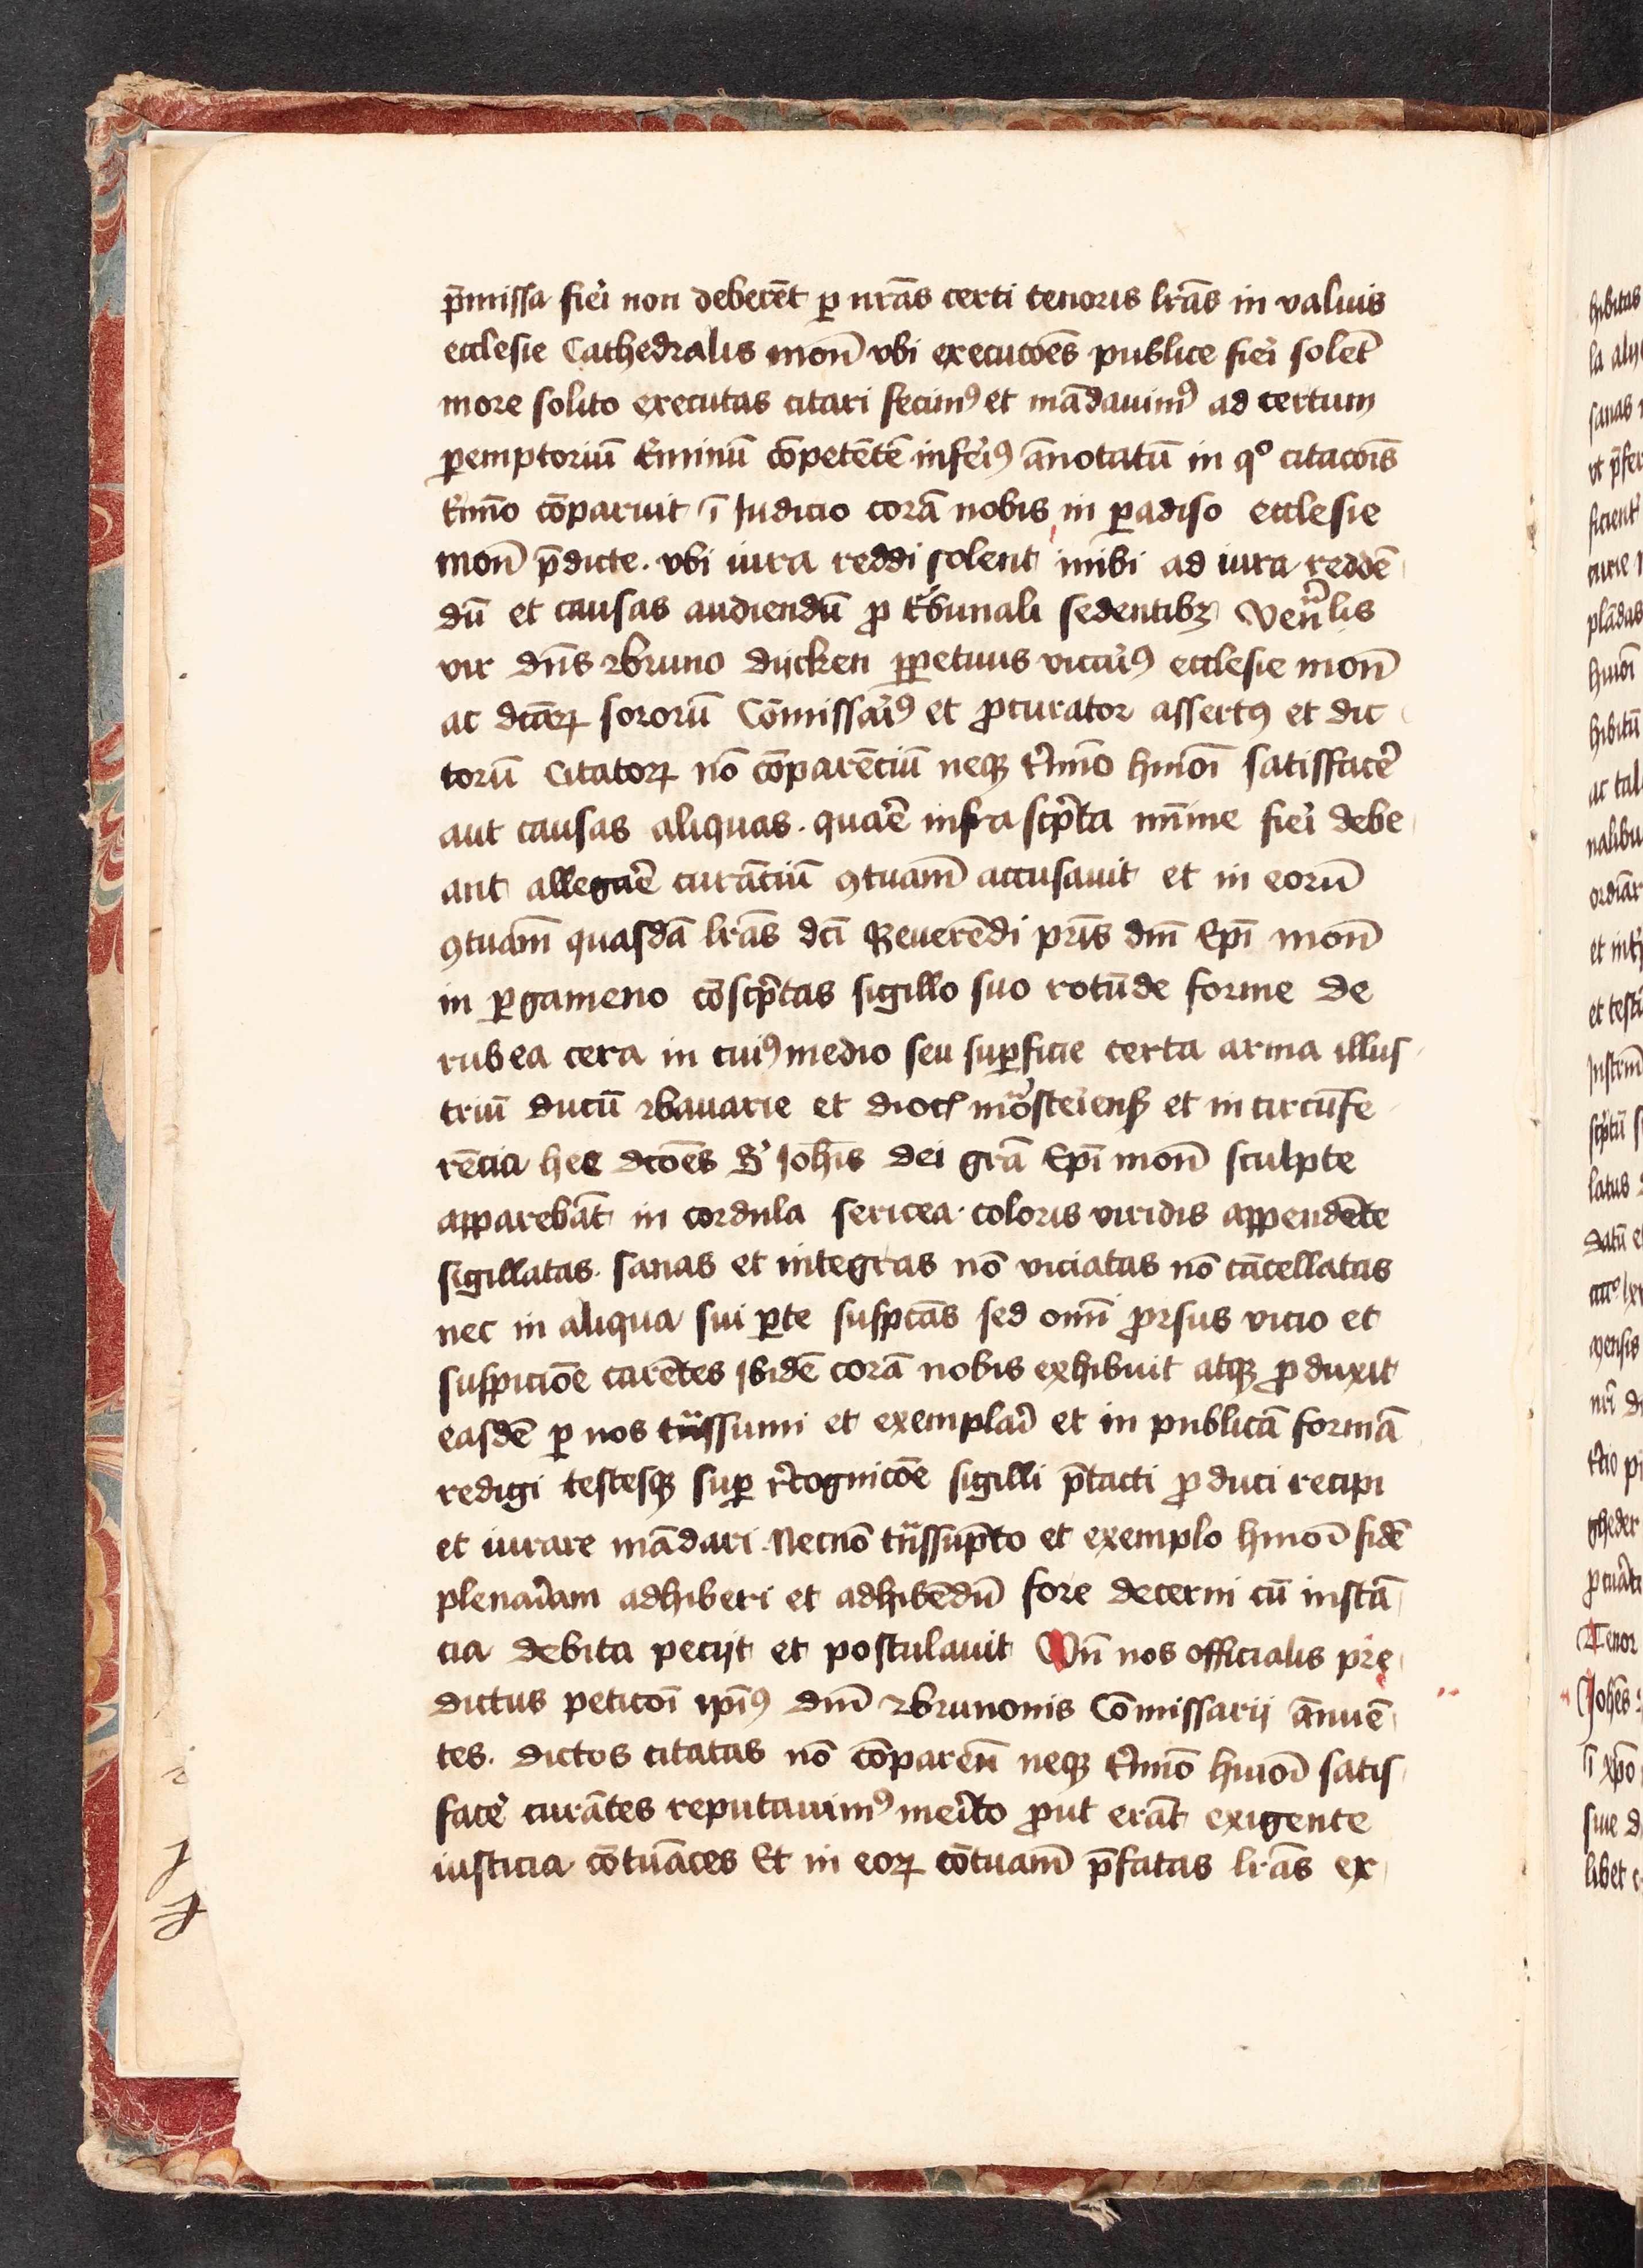 p̄missa fieri non deberēt ꝑ nr̄as certi tenoris lr̄as in valuis
ecclesie Cathedralis mon̄ vbi executōes publice fieri solēt
more solito executas citari fecimꝰ et mādauimꝰ ad certum
ꝑemptoriū t̄minū cōpetētē inferiꝰ ānotatū in qº citacōis
t̄mīo cōparuit ī Judicio corā nobis in ꝑadiso ecclesie
mon̄ p̄dicte. vbi iura reddi solent inibi ad iura reddē
dū et causas audiendū ꝓ t̄bunali sedentibꝫ Ven̄lis
vir dn̄s Bruno dijcken ꝑpetuus vicariꝰ ecclesie mon̄
ac dc̄aꝝ sororū Cōmissariꝰ et ꝓcurator assertꝰ et dic
torū Citatoꝝ nō cōparēciū neqꝫ t̄mīo hmōi satisfacẽ
aut causas aliquas. quarē infra scp̄ta mīme fieri debe
ant allegarē curāciū ꝯtuam̄ accusauit et in eorū
ꝯtuam̄ quasdā lr̄as dc̄i Reuerēdi pr̄is dn̄i Ep̄i mon̄
in ꝑgameno cōscp̄tas sigillo suo rotūde forme de
rubea cera in cuiꝰ medio seu suꝑficie certa arma illus
triū ducū Bauarie et dioc̄ mōsteriens̄ et in circūfe
rēcia hec dc̄oēs S' Joh̄is dei grā Ep̄i mon̄ sculpte
apparebāt in cordula sericea coloris viridis appendēte
sigillatas. sanas et integras nō viciatas nō cācellatas
nec in aliqua sui ꝑte suspc̄as sed om̄i ꝓrsus vicio et
suspiciōe carētes Ibidē corā nobis exhibuit atqꝫ ꝓduxit
easdē ꝑ nos trāssumi et exemplari et in publicā formā
redigi testesqꝫ suꝑ r̄cognicōe sigilli p̄tacti ꝓduci recipi
et iurare mādari. Necnō trāssūpto et exemplo hmōi fidē
plenariam adhiberi et adhibēdū fore decerni cū instā
cia debita pecijt et postulauit Vn̄ nos officialis pre
dictus peticōi ip̄iꝰ dn̄i Brunonis Cōmissarij ānuē
tes. dictos citatas nō cōparen̄ neqꝫ t̄mīo hmōi satis
facẽ curātes reputauimꝰ merito ꝓut erāt exigente
iusticia cōtuāces Et in eoꝝ cōtuam̄ p̄fatas lr̄as ex